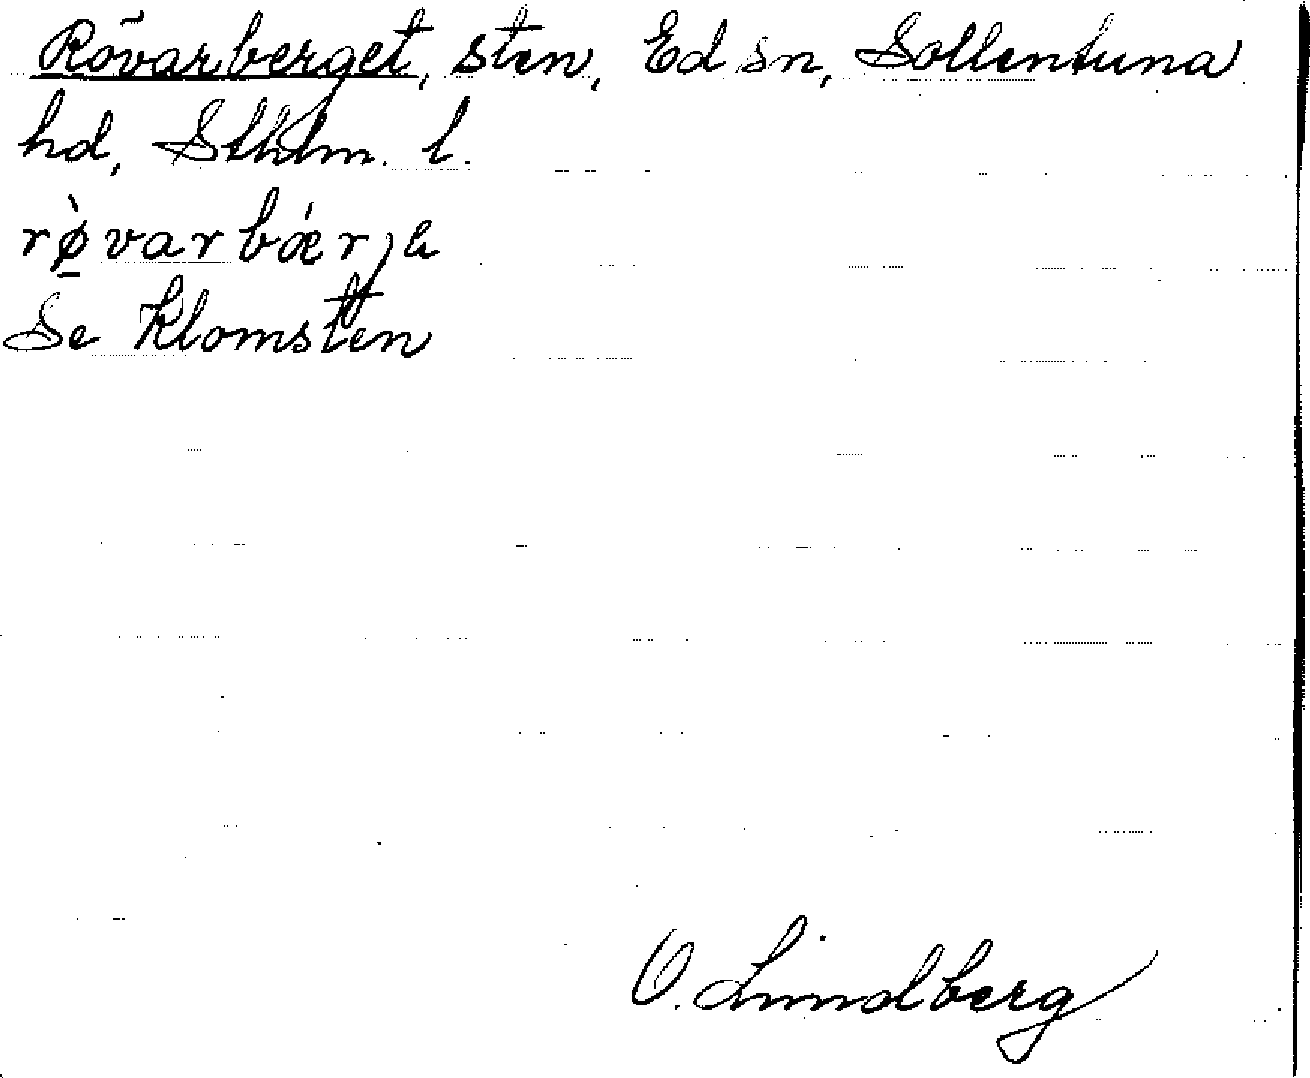 Rövarberget, sten, Ed sn, Sollentuna
hd, Sthlm. l.
rø̠̀varbǽrjе
Se Klomsten
O. Lundberg